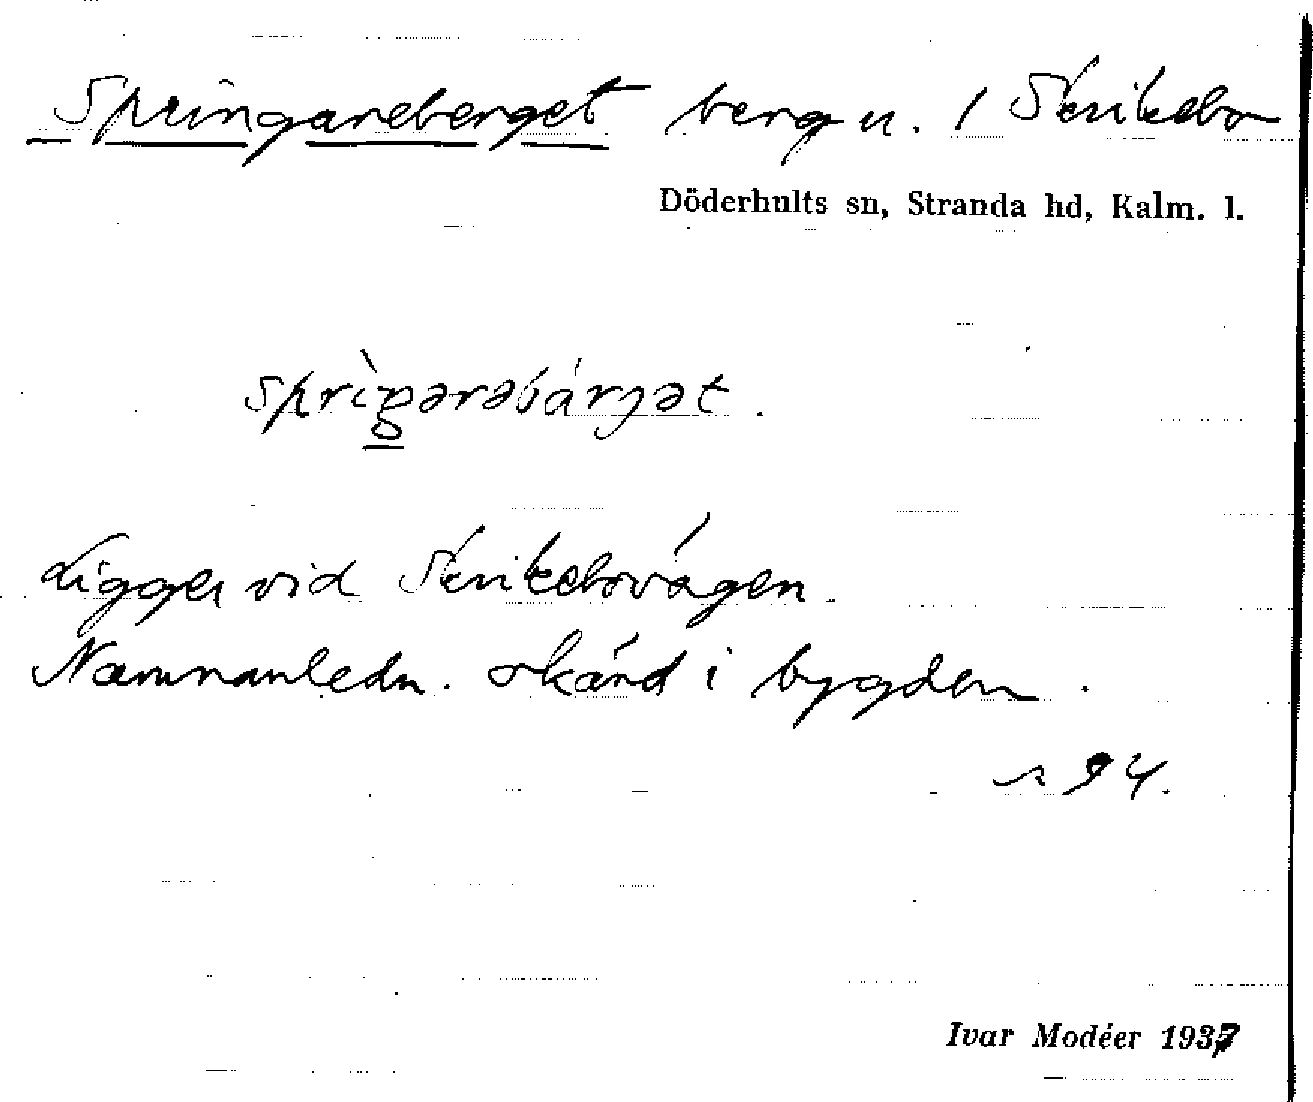 Springareberget berg u. / Skrikebo
Döderhults sn, Stranda hd, Kalm. l.
Ligger vid Skrikebovägen.
Namnanledn. okänd i bygden.
s 94.
Ivar Modéer 1937